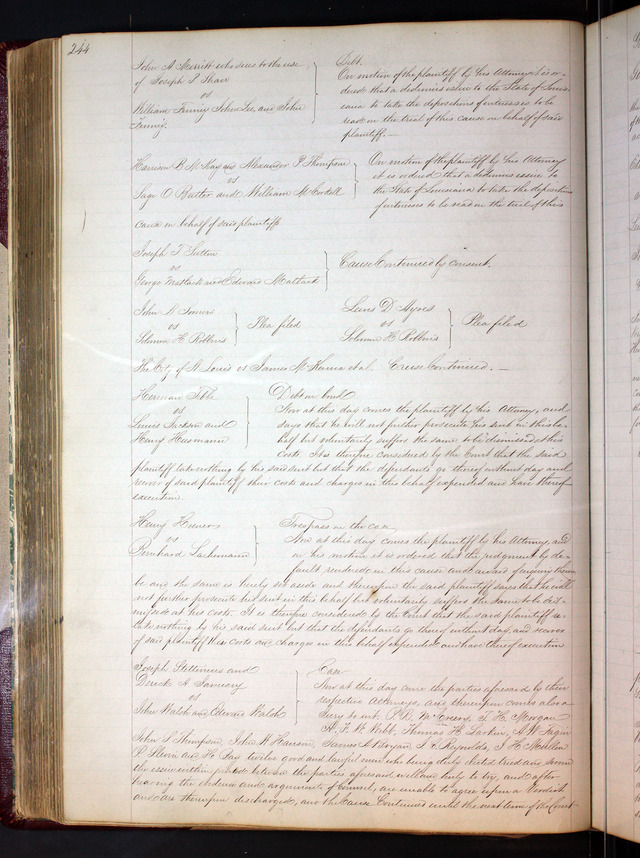 244
John A Merritt who sues to the use
of Joseph S Shaw
vs
William Finney John Lee, and John
Finney.
Debt.
On motion of the plaintiff by his Attorney it is or-
dered that a dedimus issue to the State of Louis-
iana to take the depositions of witnesses to be
read on the trial of this cause on behalf of said
plaintiff.—
Harrison B McKay and Alexander P Thompson
vs
Sage O Butler and William M
On motion of the plaintiff by his Attorney
it is ordered that a dedimus issue to
the State of Louisiana to take the depositions
of witnesses to be read on the trial of this
cause on behalf of said plaintiffs
Joseph T Sutton
vs
George Matlack and Edward Matlack
Cause Continued by consent.
John S Somers
vs
Solomon H Robbins
Plea filed
Lewis D Myers
vs
Solomon H Robbins
Plea filed
The City of St Louis vs James M Kenna et al. Cause Continued.—
Herman
vs
Louis Jackson and
Henry Husmann
Debt on bond
Now at this day comes the plaintiff by his Attorney, and
says that he will not further prosecute his suit in this be-
half but voluntarily suffers the same to be dismissed at his
costs. It is therefore considered by the Court that the said
plaintiff take nothing by his said suit but that the defendants go thereof without day and
recover of said plaintiff their costs and charges in this behalf expended and have thereof
execution
Henry
vs
Bernhard Lachmann
Trespass on the case
Now at this day comes the plaintiff by his Attorney, and
on his motion it is ordered that the judgment by de-
fault rendered in this cause and award of inquiry thereon
be and the same is hereby set aside and thereupon the said plaintiff says that he will
not further prosecute his suit in this behalf but voluntarily suffers the same to be dis-
missed at his costs. It is therefore considered by the Court that the said plaintiff
take nothing by his said suit but that the defendants go thereof without day, and recover
of said plaintiff their costs and charges in this behalf expended and have thereof execution
Joseph Stettinius and
Derick A January
vs
John Walsh and Edward Walsh
Case
Now at this day come the parties aforesaid by their
respective Attorneys, and thereupon comes also a
Jury to wit. P. B. McCreery, H. Morgan
A. F. W. Webb, Thomas H. Larkin, A W Fagin
John S Thompson, John W Hanson, James A Bryan, Reynolds, J H Miller
P Slevin and H Gay twelve good and lawful men who being duly elected tried and sworn
the issue within joined between the parties aforesaid well and truly to try, and after
hearing the evidence and arguments of Counsel, are unable to agree upon a Verdict
and are thereupon discharged, and the Cause Continued until the next term of the Court